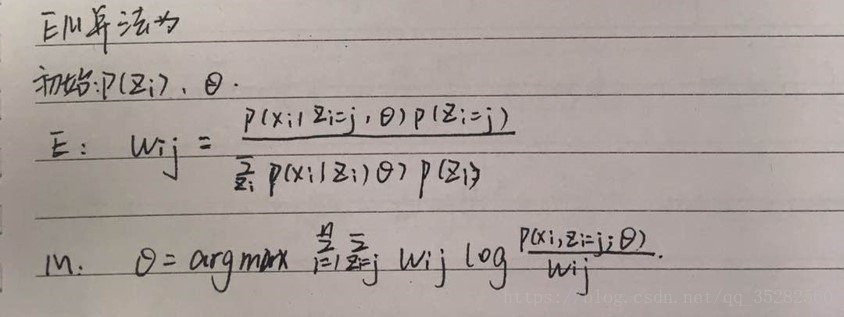 EM算法为
初始:P(Zi)、θ.
E: Wij = P(xi|Zi=j,θ)P(Zi=j) / ∑_{Zi} P(xi|Zi,θ) P(Zi)
M: θ = argmax ∑_{i=1}^{n} ∑_{Zi=j} Wij log P(xi,Zi=j;θ) / Wij.
https://blog.csdn.net/qq_3528256